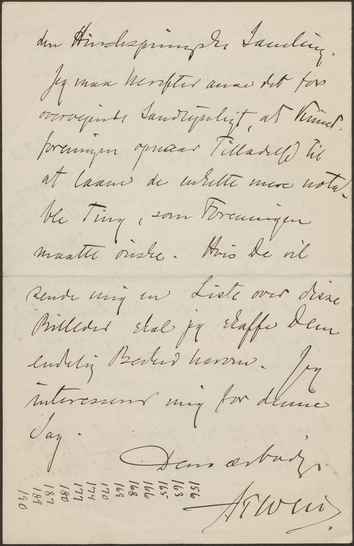 den Hirschsprungske Samling.
Jeg maa herefter anse det for
overvejende Sandsynligt, at Kunst-
foreningen opnaar Tilladelse til
at laane de enkelte mere nota-
ble Ting, som Foreningen
maatte ønske. Hvis De vil
sende mig en Liste over disse
Billeder skal jeg skaffe Dem
endelig Besked herom. Jeg
interesserer mig for denne
Sag.
Deres ærbødige
156
163
165
166
168
169
170
174
177
180
187
189
190